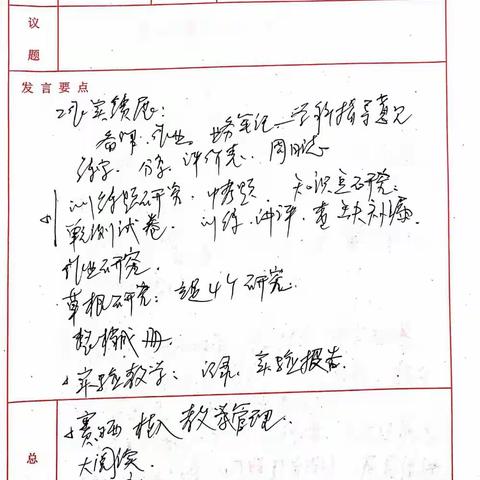 议
题
发言要点
实绩展:
备课、作业、 笔记 学科指导意见
练字、分享、评价表、周周
训练题研究、中考题、知识点研究
单元测试卷、训练、讲评、查缺补漏
作业研究
草根研究: 4个研究
整理成册
实验教学: 记录、实验报告
赛 植入教学管理
总
大阅读